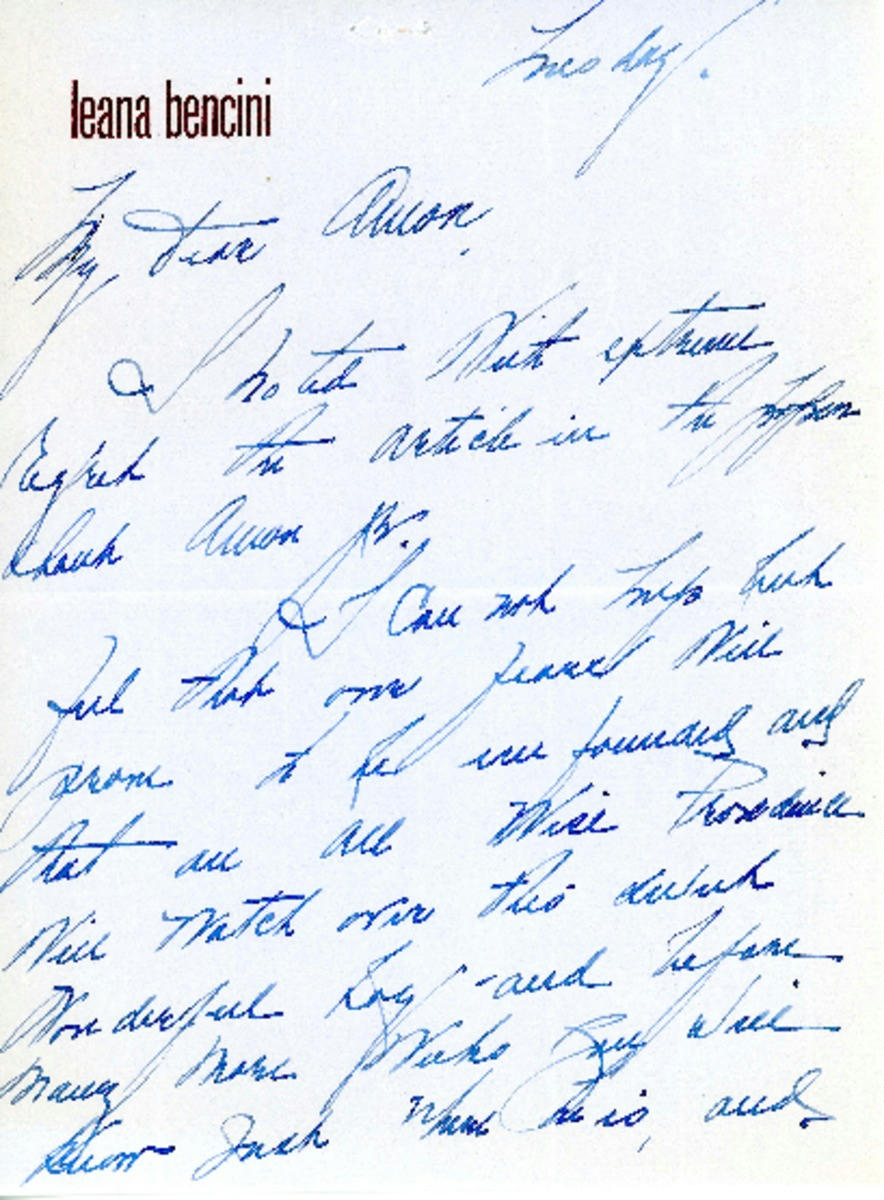 Tuesday.
leana bencini
My Dear Amon.
I noted with extreme
regret the article in the paper
about Amon Jr.
I can not help but
feel that our fears will
prove to be unfounded and
that an all wise Providence
will watch over this
wonderful boy - and before
many more weeks you will
know just where he is, and